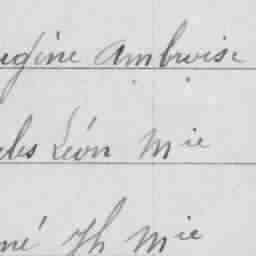 ugène Ambroise
les Léon Mie
né Jh Mie